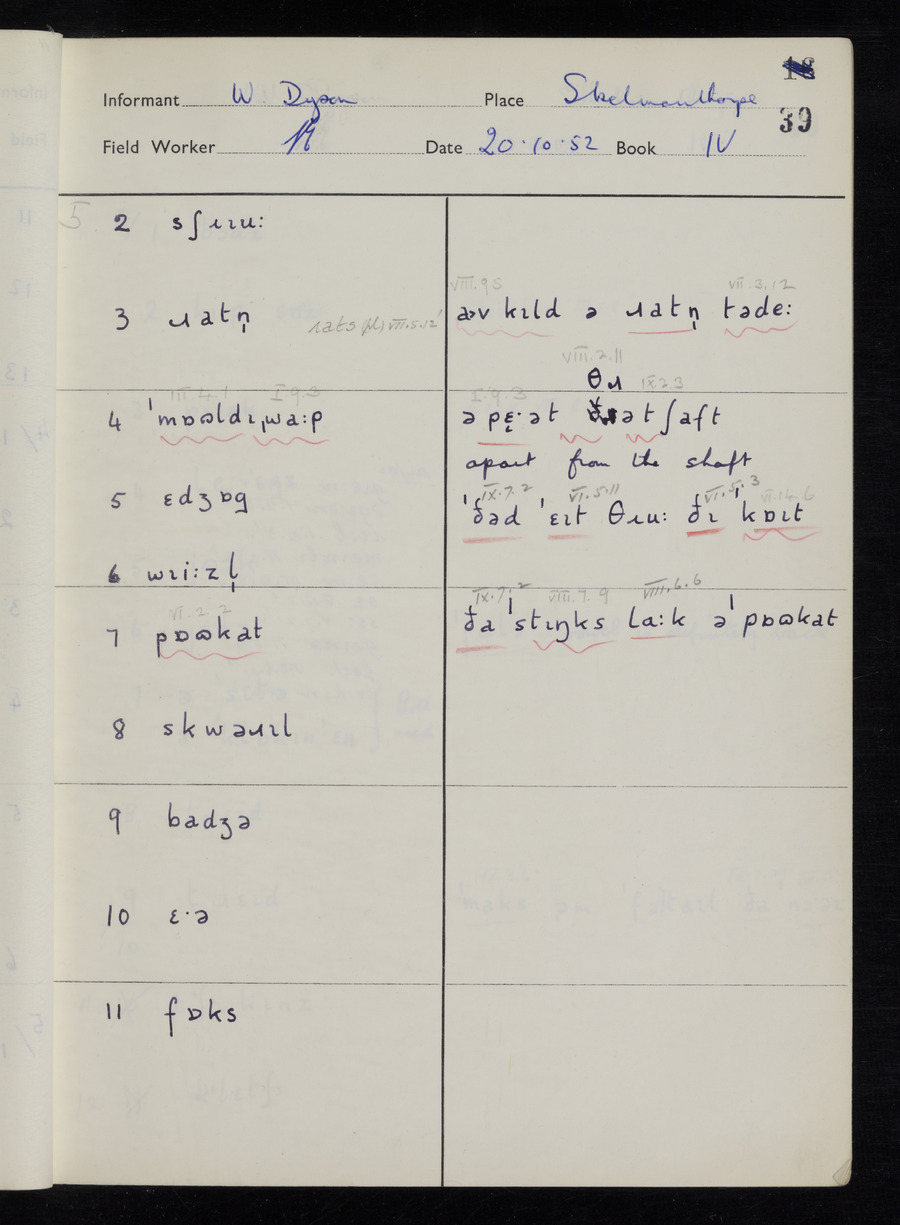 18
Informant W Dyson Place Skelmanthorpe
39
Field Worker Date 20.10.52 Book IV
5 2 sʃɹɪuː
VIII.9.5 VII.3.12
3 ɹatn̩ ɹats (pl) VII.5.12 əv kɪld ə ɹatn̩ tədeː
VIII.2.11
θɹ IX.2.3
III.4.1 I.9.3 I.9.3
4 ˈmɒʊldɪˌwaːp ə pɛ̝ˑət ət ʃaft
apart from the shaft
IX.7.2 VI.5.11 VI.5.3 VI.14.6
5 ɛdʒɒg ˈðəd ˈɛɪt θɹuː ðɪ kɒɪt
6 wɪiːzl̩
VI.2.2 IX.7.2 VIII.7.9 VIII.6.6
7 pɒʊkat ða ˈstɪŋks laːk əˈpɒʊkat
8 skwəɹɪl
9 badʒə
10 ɛˑə
11 fɒks